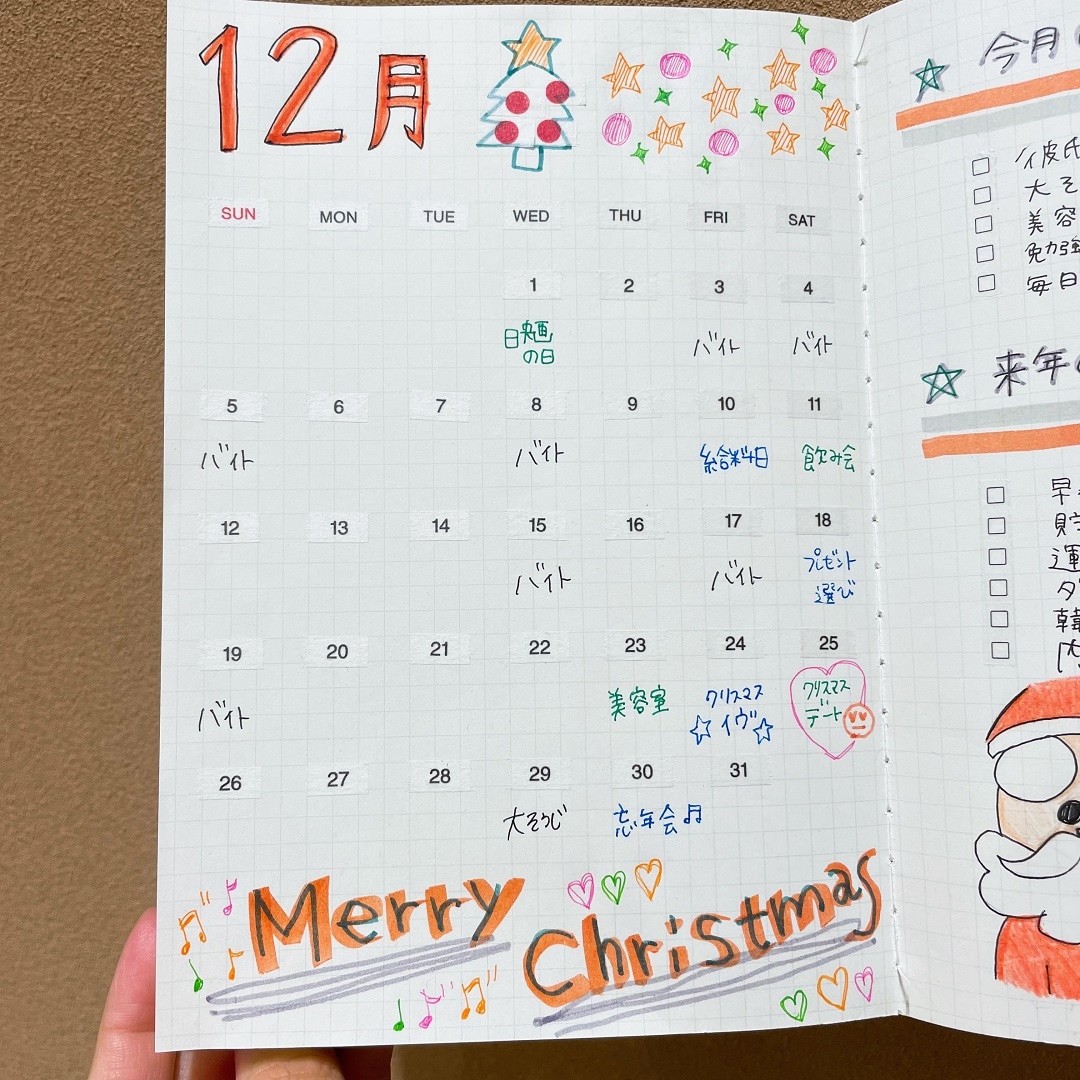 12月
SUN MON TUE WED THU FRI SAT
1 2 3 4
日映画
の日
バイト バイト
5 6 7 8 9 10 11
バイト バイト 給料日 飲み会
12 13 14 15 16 17 18
バイト バイト プレゼント
選び
19 20 21 22 23 24 25
バイト 美容室 クリスマス クリスマス
イヴ デート
26 27 28 29 30 31
大そうじ 忘年会
Merry Christmas
今月
彼氏
大そ
美容
勉強
毎日
来年の
早
貯
運
ダ
韓
内